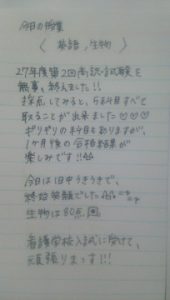 今日の授業
〈 英語, 生物 〉
27年度第2回高認試験を
無事、終えました!!
採点してみると、5科目すべて
取ることが出来ました♡♡♡
ギリギリの科目もありますが、
1ヶ月後の合格結果が
楽しみです!!
今日は1日中うきうきで、
終始笑顔でした
生物は80点
看護学校入試に向けて、
頑張りまっす!!!